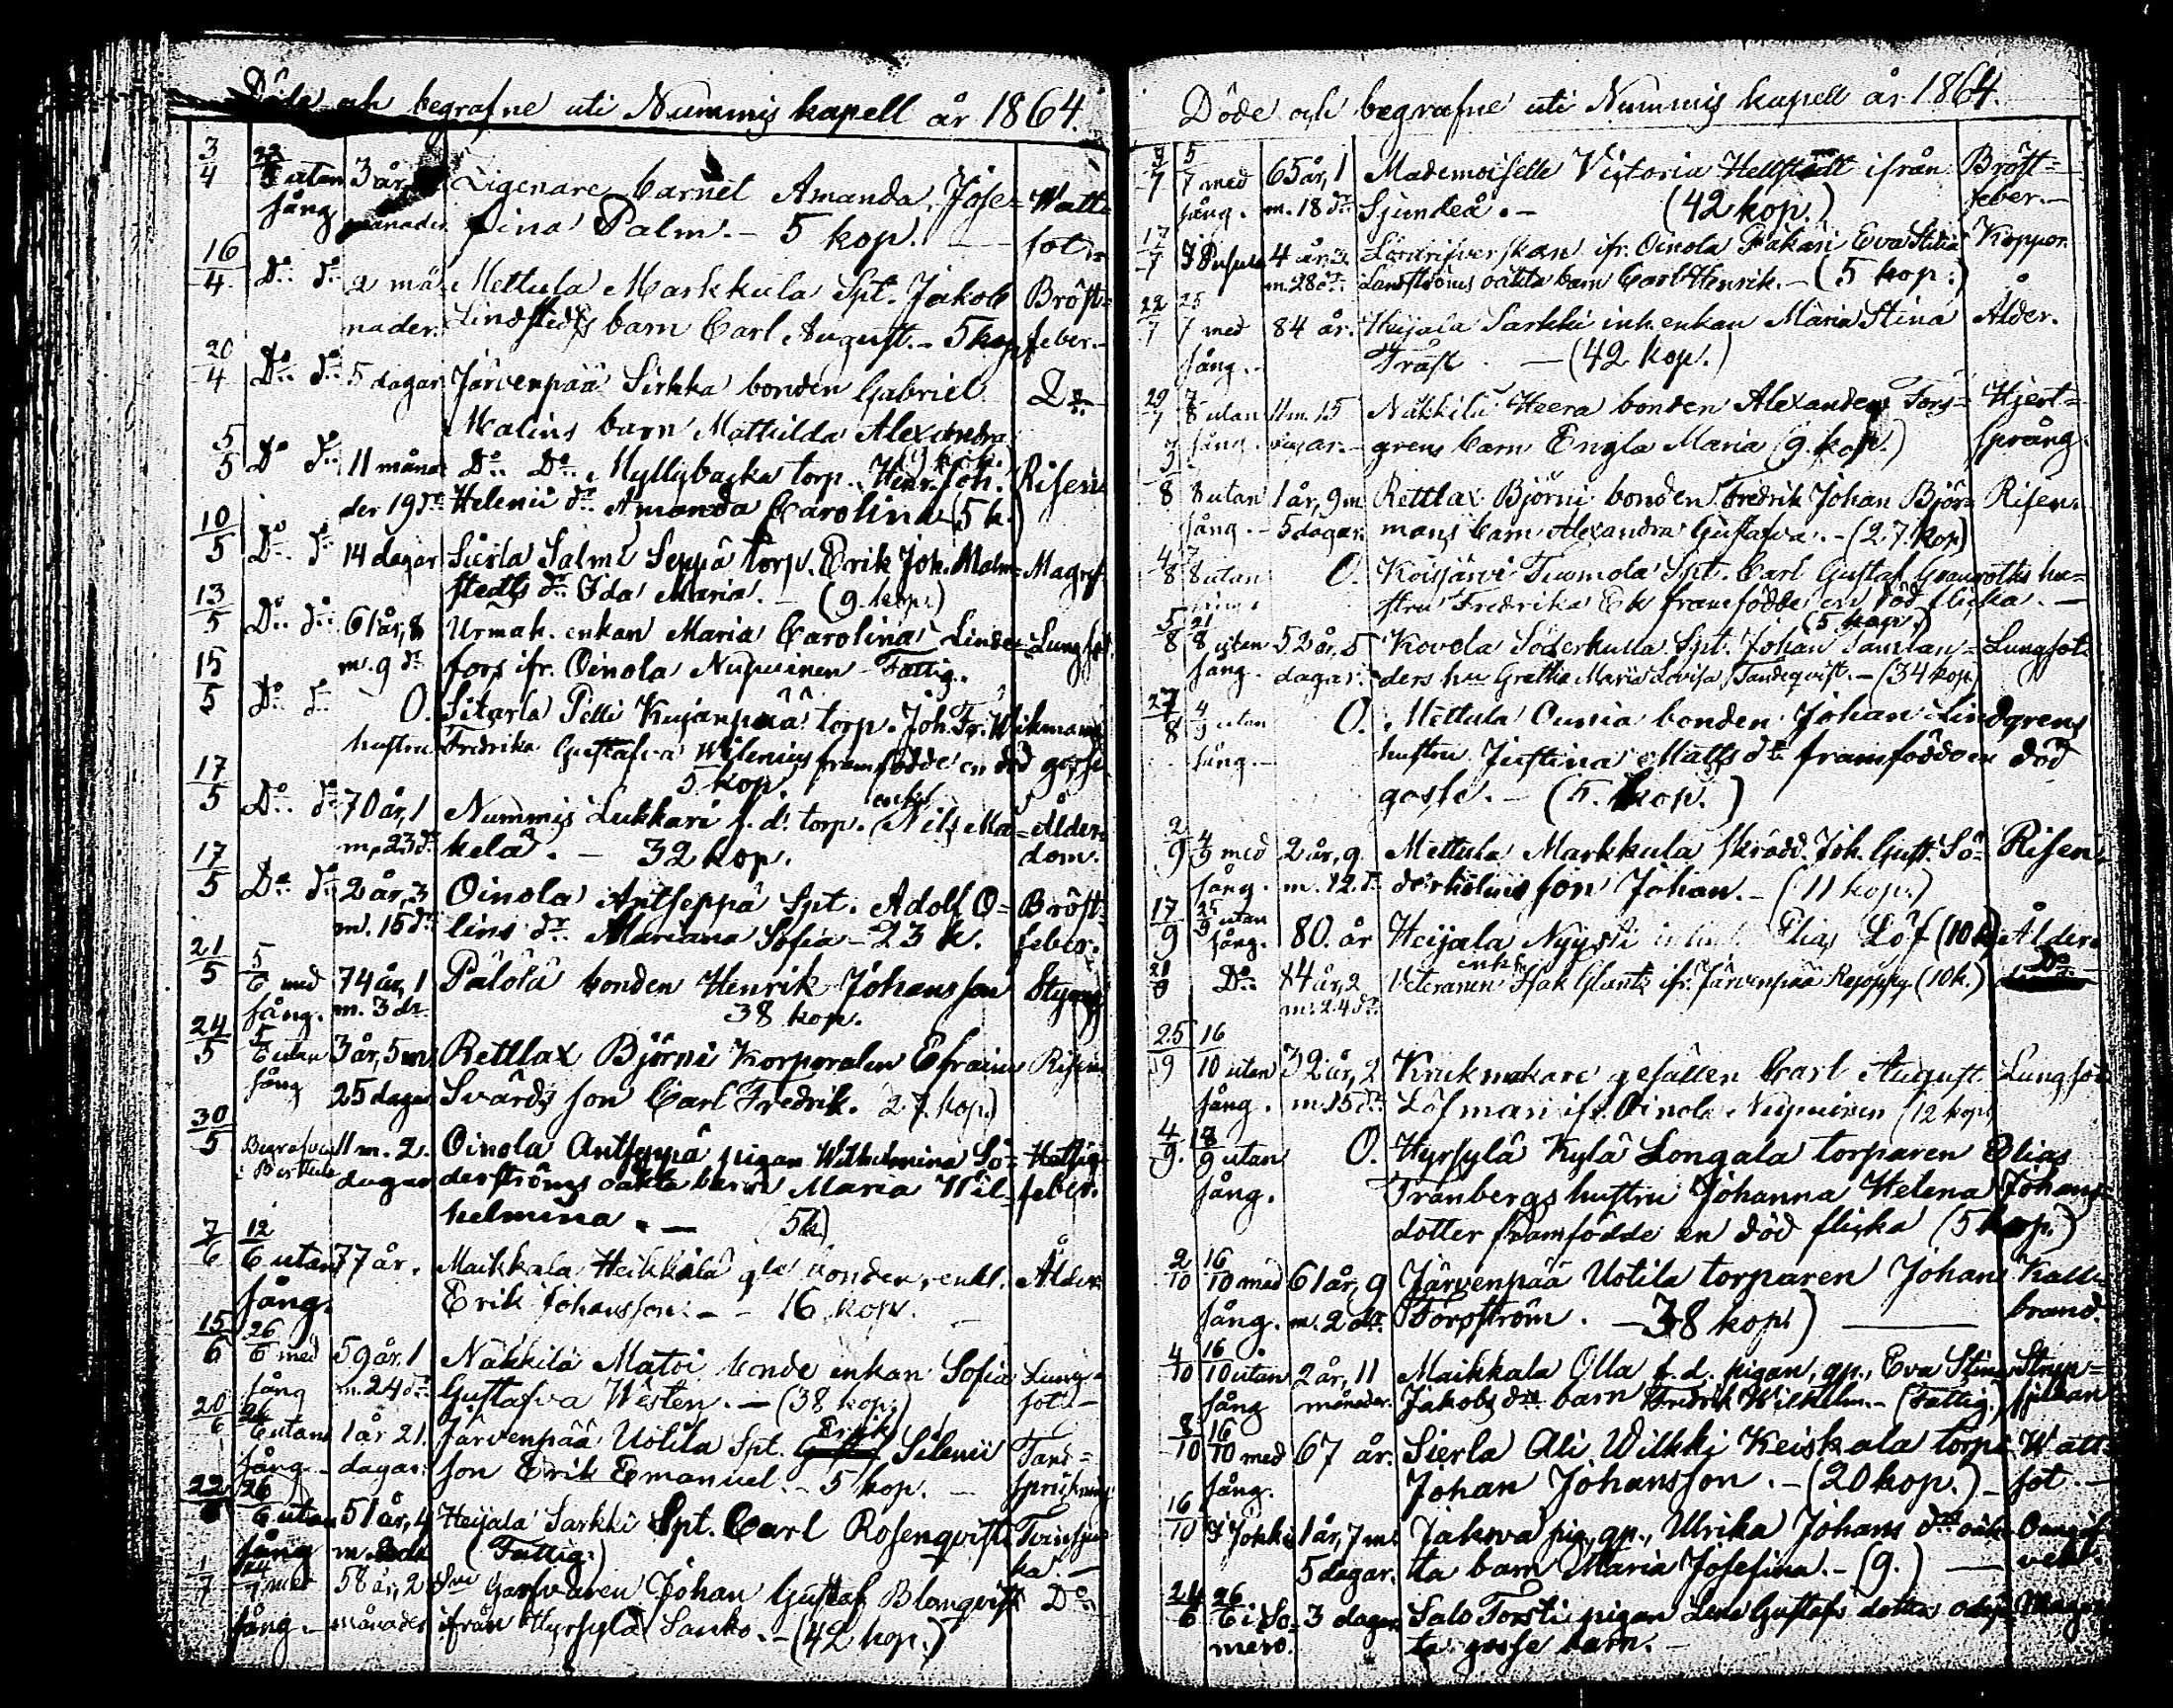 Döde och begrafne uti Nummis kapell år 1864.
3/4 22/5 utan 3 år, Ligenare barnet Amanda Jose= Watt=
sång månader fina Palm. - 5 kop. - sot.
16/4 Do do 2 må= Mettula Markkula Spt. Jakob Bröst=
nader. Lindstedts barn Carl August. - 5 kop. feber.
20/4 Do do 5 dagar Järvenpää Sirkka bonden Gabriel Do
Malins barn Mathilda Alexandra
5/5 Do do 11 måna= Do Do Myllybacka torp. Henr. Joh. Risen.
der 19 dr Helenii dr Amanda Carolina (5 k.)
10/5 Do do 14 dagar Sierla Salmi Seppä torp. Erik Joh. Malm= Magref.
stedts dr Ida Maria. - (9 kop.)
13/5 Do do 61 år, 8 Urmak. enkan Maria Carolina Linde= Lungsot.
m. 9 dr fors ifr. Oinola Nupuinen - Fattig.
15/5 Do do O. Sitarla Pelli Kujanpää torp. Joh. Fr. Wikmans
hustru Fredrika Gustafva Wilenius framfödde en död gosse
5 kop.
17/5 Do do 70 år, 1 Nummis Lukkari f. d. torp. enkl. Nils Mä= Ålder=
m. 23 dr kelä. - 32 kop. dom.
17/5 Do do 2 år, 3 Oinola Antseppä Spt. Adolf O= Bröst=
m. 15 dr lins dr Mariana Sofia - 23 k. feber.
21/5 5/6 med 74 år, 1 Pälölä bonden Henrik Johansson Styng
sång. m. 3 dr 38 kop.
24/5 5/6 utan 3 år, 5 m. Rettlax Björni Korporalen Efraim Risen
sång 25 dagar Svärds son Carl Fredrik. 27 kop.)
30/5 Begrafven 11 m. 2 Oinola Antseppä pigan Wilhelmina Sö= Hetsig
i dagar derströms oäkta barn Maria Wil= feber.
helmina. - (5 k.)
7/6 12/6 utan 77 år. Maikkala Heikkilä gle bonden, enkl. Ålder
sång. Erik Johansson. - - 16 kop.
15/6 26/6 med 59 år, 1 Näkkilä Matoi bonde enkan Sofia Lung=
sång m. 24 dr Gustafva Westen. - (38 kop.) sot. -
20/6 26/6 utan 1 år 21. Järvenpää Uotila Spt. Erik Silenii Tand=
sång - dagar. son Erik Emanuel. - 5 kop. - sprickning
22/6 26/6 utan 51 år, 4 Heijala Sarkki Spt. Carl Rosenqvist Tvinsju=
sång m. (Fattig.) ka. -
1/7 med 58 år, 2 Garfvaren Johan Gustaf Blomqvist Do
sång. - månader ifrån Hyrsylä Sauko. - (42 kop.)
Döde och begrafne uti Nummis kapell år 1864.
3/7 5/7 med 65 år, 1 Mademoiselle Victoria Hellstedt ifrån Bröst=
sång. m. 18 dr Sjundeå. - (42 kop.) feber. -
17/7 I Pusula 4 år, 3 ifr. Oinola Pakari Eva Stina Koppor.
m. 28 dr Landströms oäkta barn Carl Henrik. - (5 kop.)
22/7 25/7 med 84 år. Heijala Sarkki inh. enkan Maria Stina Ålder.
sång. - Träsk - (42 kop.)
29/7 7/8 utan 11 m. 15 Näkkilä Heera bonden Alexander Fors= Hjert=
sång. dagar. - grens barn Engla Maria (9. kop.) språng.
3/8 7/8 utan 1 år, 9 m Rettlax Björni bonden Fredrik Johan Björ= Risen.
sång. - 5 dagar. mans barn Alexandra Gustafva. - (27. kop)
4/8 7/8 utan O. Koisjärvi Tuomola Spt. Carl Gustaf Granroths hu=
stru Fredrika Ek framfödde en död flicka. -
(5 kop.)
5/8 21/8 utan 53 år, 5 Kovola Söderkulla Spt. Johan Samlan= Lungsot.
sång. dagar. ders hu Gretha Maria Lovisa Tandeqvist. - (34 kop)
27/8 4/9 utan O. Mettula Ounia bonden Johan Lindgrens
sång. - hustru Justina Matts dr framfödde en död
gosse. - (5. kop.)
2/9 4/9 med 2 år, 9 Mettula Markkula skrädd. Joh. Gust. Sö= Risen.
sång. m. 12. dr derholms son Johan. - (11 kop.)
17/9 25/9 utan sång. 80. år Heijala Nyysti Elias Löf (10 k) Ålder.
21/9 Do 84 år, 2 Veteranen enkl. Isak Glantz ifr. Järvenpää (10 k.) Do
m. 24 dr
25/9 16/10 utan 32 år, 2 Krukmakare gesällen Carl August Lungsot
sång. m. 15 dr Löfman ifr. Oinola Nupuinen (12 kop)
4/9 18/9 utan O. Hyrsylä Kylä Longala torparen Elias
sång. Tranbergs hustru Johanna Helena Johans=
dotter framfödde en död flicka (5 kop.)
2/10 16/10 med 61 år, 9 Järvenpää Uotila torparen Johan Kall=
sång. m. 2 dr Forsström. - 38 kop.) brand.
4/10 16/10 utan 2 år, 11 Maikkala Olla f. d. pigan, gp., Eva Stina Stryp=
sång månader. Jakobs dtr barn Fredrik Wilhelm. - (Fattig.) sjukan
8/10 16/10 med 67 år. Sierla Ali Wilkki Keiskala torp. Watt
sång. Johan Johansson. - (20 kop.) - sot. -
16/10 I Jokkis 1 år, 7 m. Jakova pig. gp., Ulrika Johans dtr oäk=
5 dagar. ta barn Maria Josefina. - (9.) -
24/6 26/6 i So= 3 dagar Salo Torsti pigan Lena Gustafs dotters oäk= Magref
mero. ta gosse barn. -